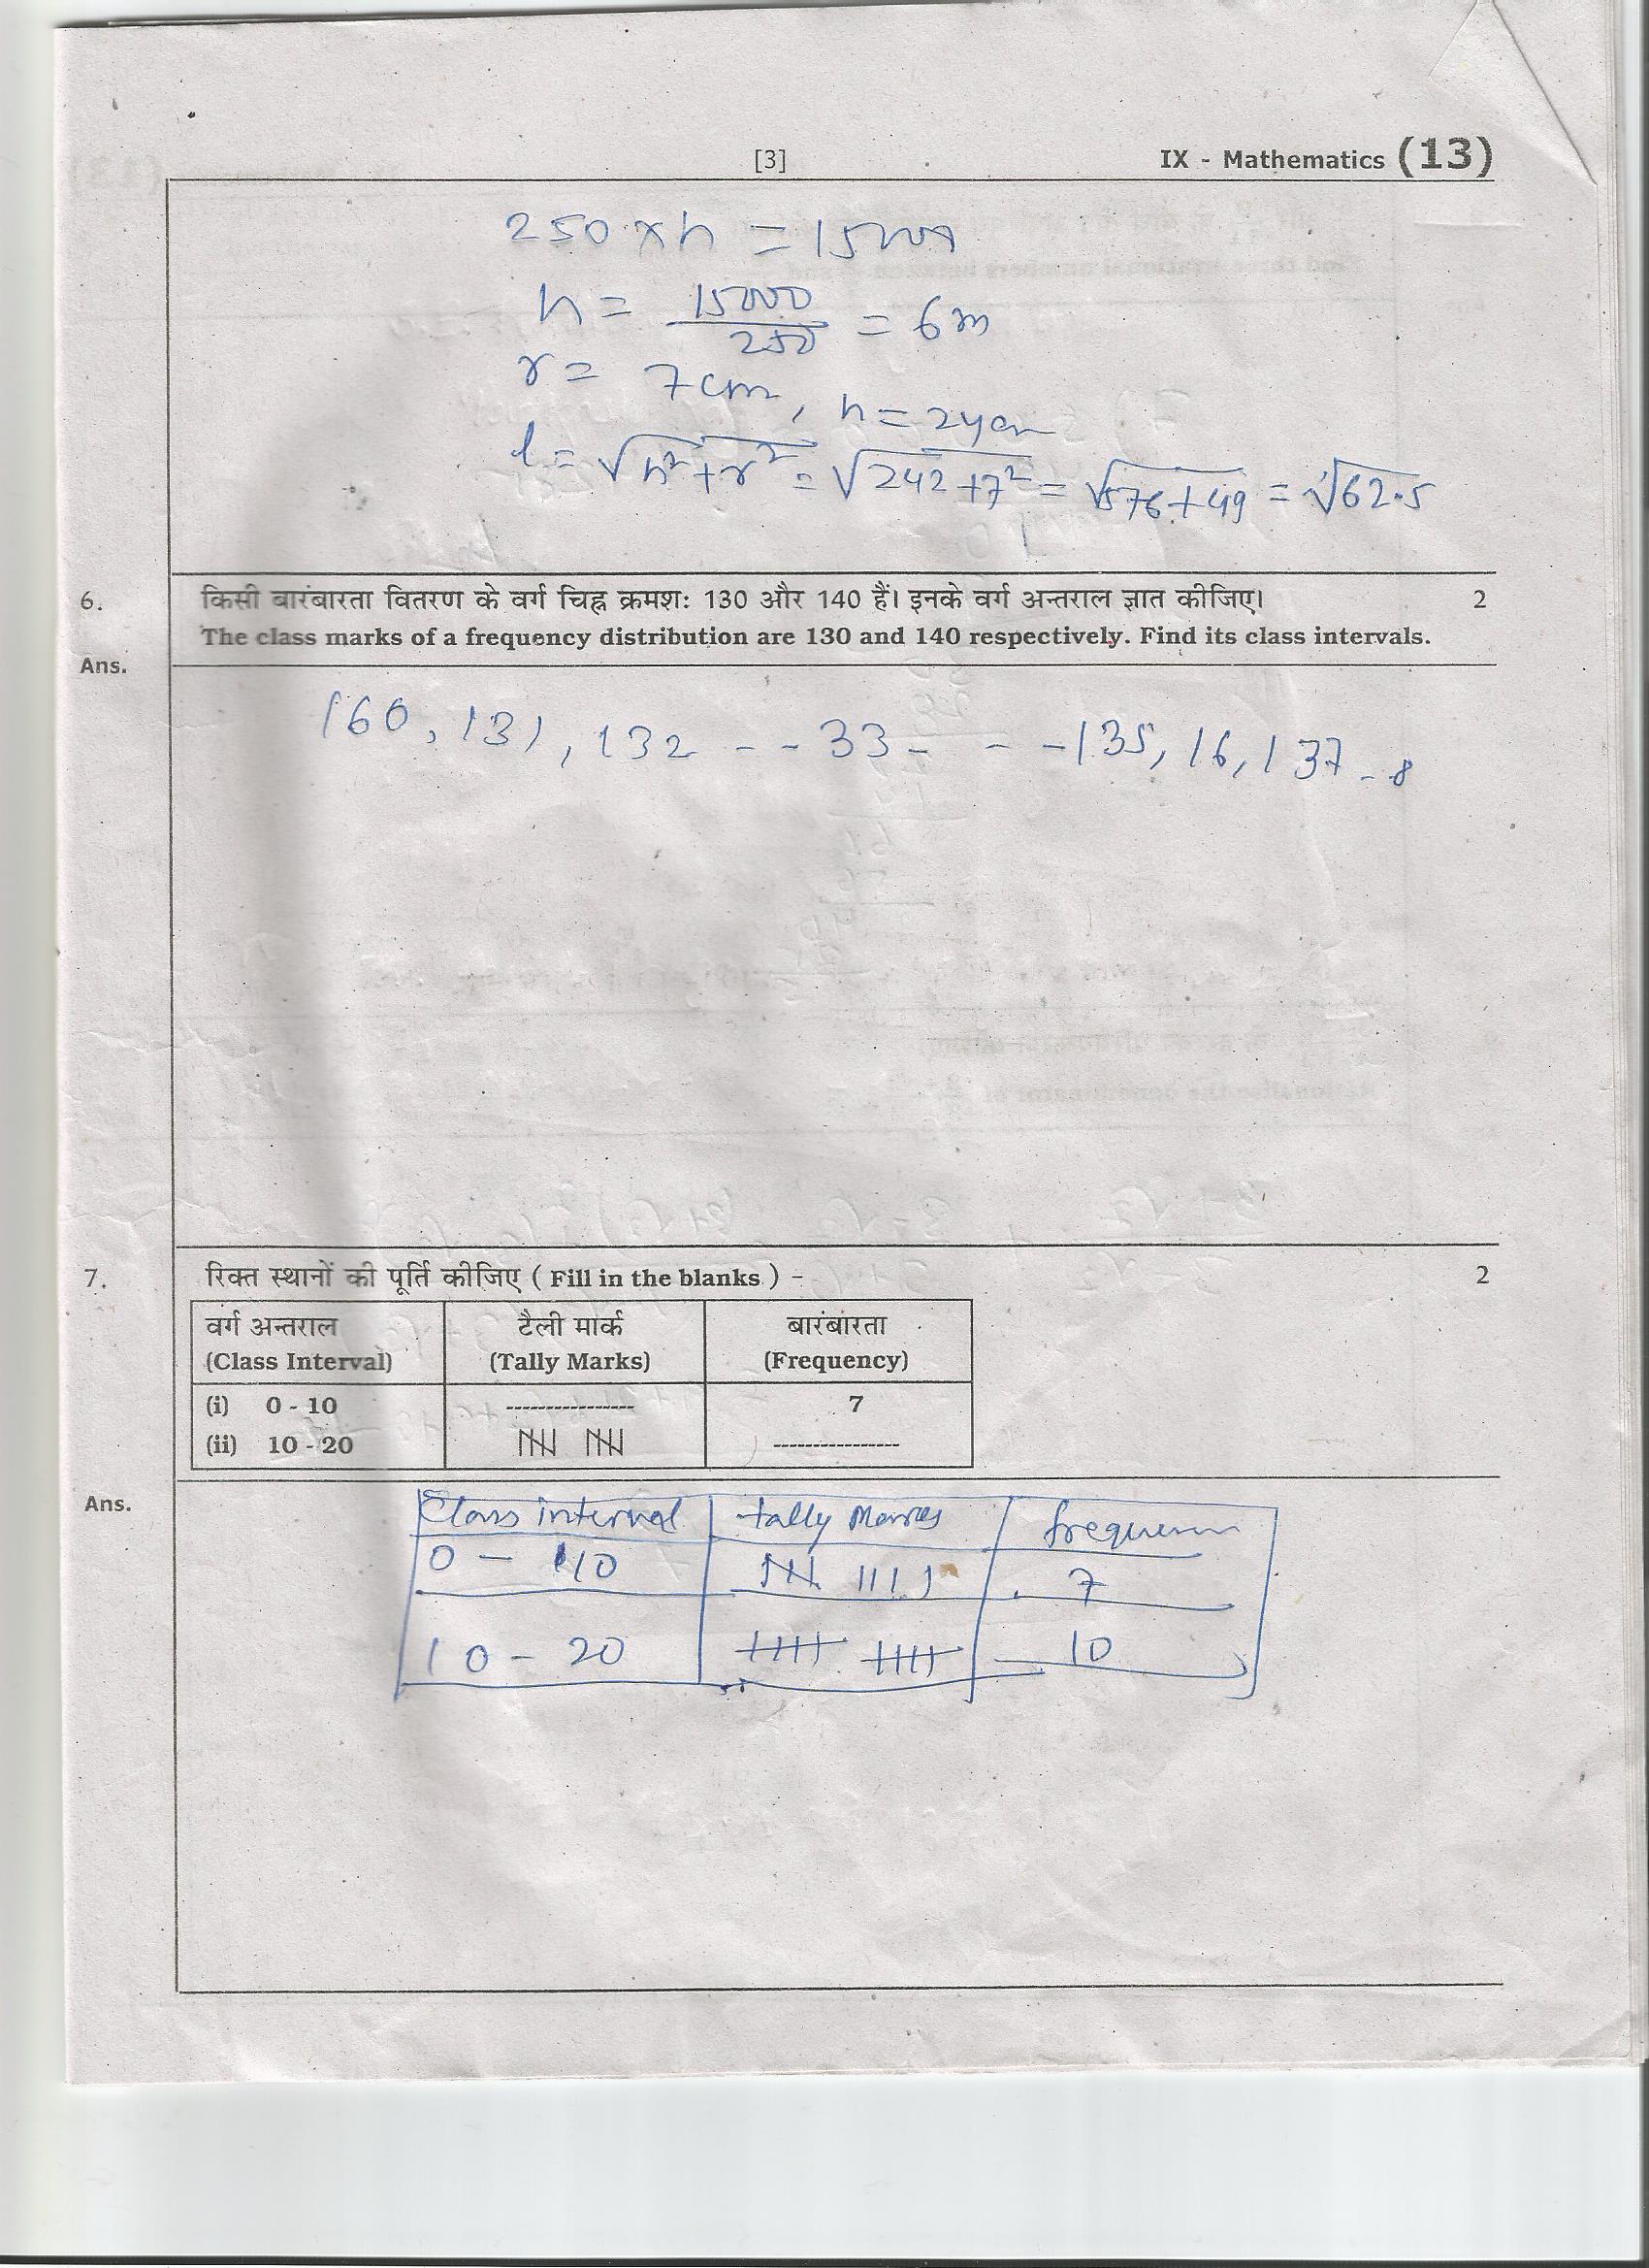 [3] IX - Mathematics (13)
250 × h = 15000
h = 15000/250 = 6m
r = 7cm, h = 24cm
l = √h²+r² = √242+7² = √576+49 = √62.5
6. किसी बारंबारता वितरण के वर्ग चिह्न क्रमशः 130 और 140 हैं। इनके वर्ग अन्तराल ज्ञात कीजिए। 2
The class marks of a frequency distribution are 130 and 140 respectively. Find its class intervals.
Ans.
160, 131, 132 - - 33 - - - 135, 16, 137 - 8
7. रिक्त स्थानों की पूर्ति कीजिए ( Fill in the blanks ) - 2
वर्ग अन्तराल टैली मार्क बारंबारता
(Class Interval) (Tally Marks) (Frequency)
(i) 0 - 10 ---------------- 7
(ii) 10 - 20 𝍸 𝍸 ----------------
Ans.
Class interval tally Marks
0 - 10 𝍸 |||| 7
10 - 20 𝍸 𝍸 10